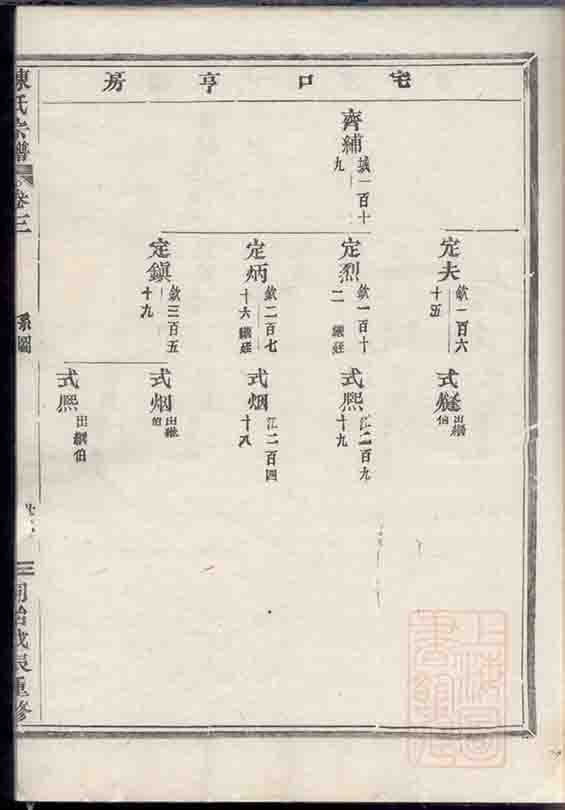 宅口亨房
齊繡
誠一百十
九
定夫
欽一百六
十五
定烈
欽一百十
二
繼廷
定炳
欽二百七
十六
繼廷
定鎮
欽三百五
十九
式烶
出繼
伯
式熙
江二百九
十九
式烟
江二百四
十八
式烟
出繼
伯
式熙
出繼伯
陳氏宗譜
卷三
系圖
同治戊辰重修
上海圖
書館藏